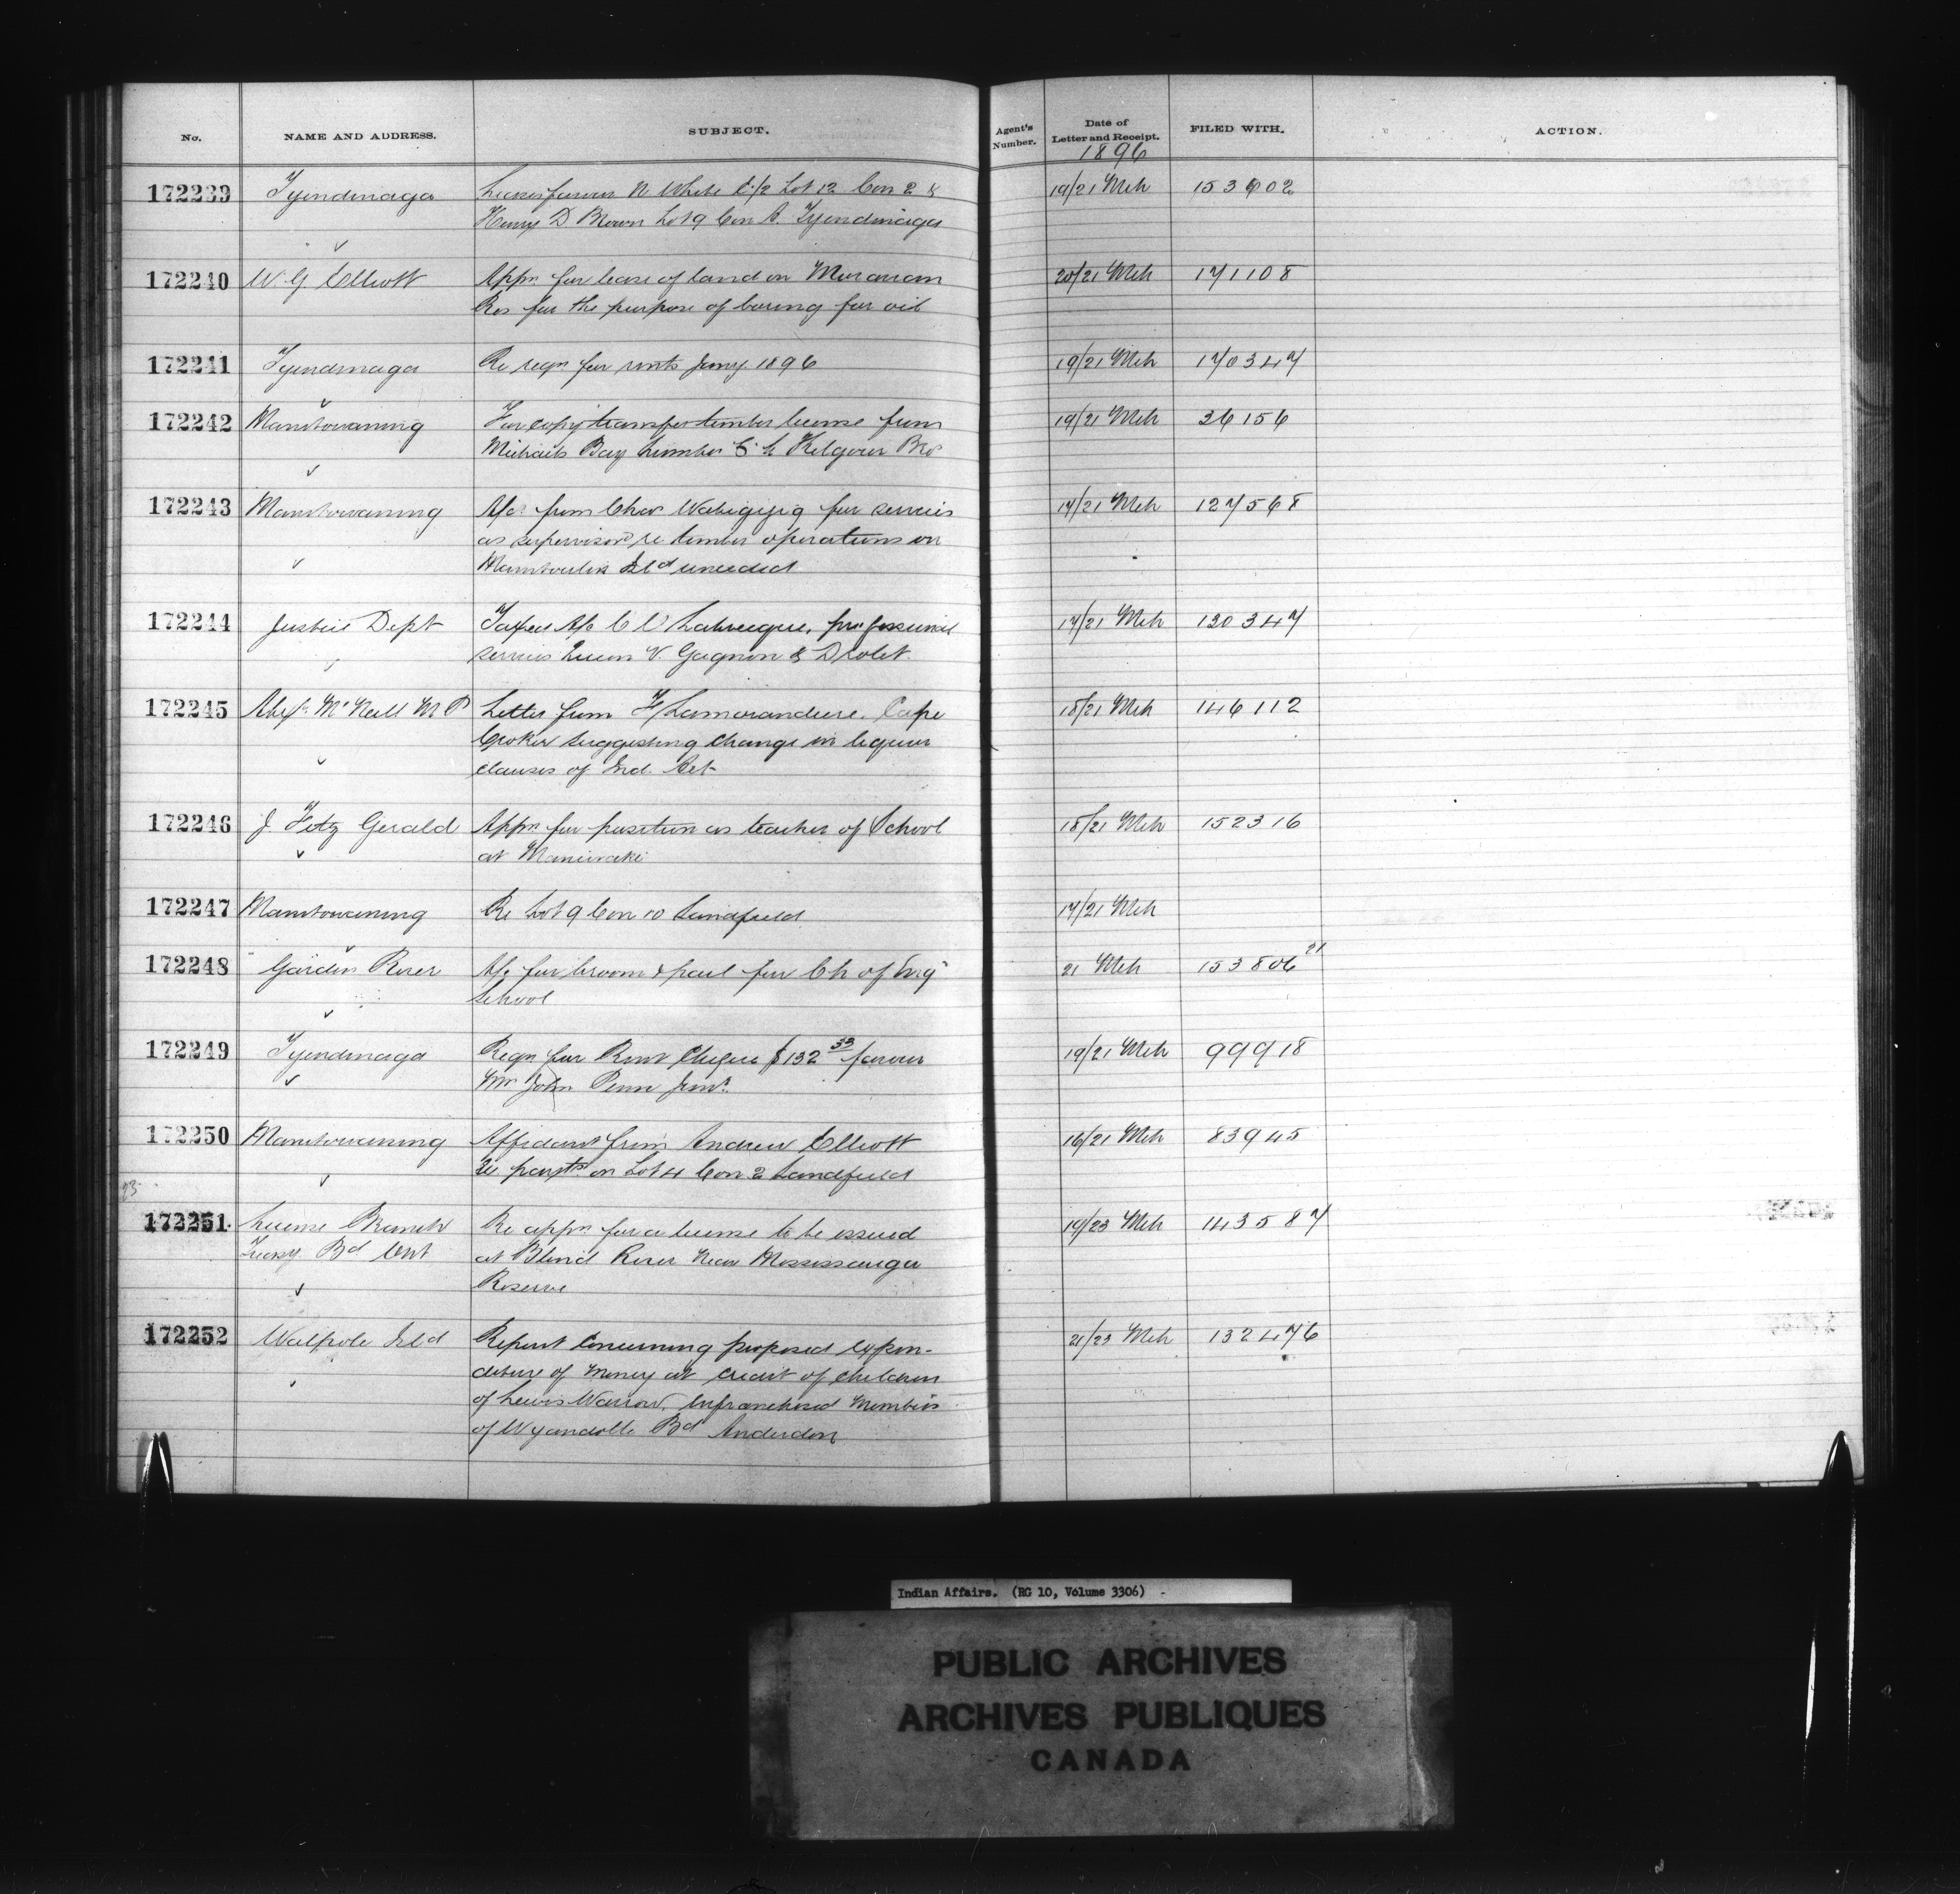 No. NAME AND ADDRESS. SUBJECT. Agent's Number. Date of Letter and Receipt. FILED WITH. ACTION.
1896
172239 Tyendinaga Leases favour N White E 1/2 Lot 12 Con 2 & 19/21 Mch 153602
Henry D Brown Lot 9 Con A. Tyendinaga
172240 W. G Elliott Appn for lease of land on Moravian 20/21 Mch 171108
Res for the purpose of boring for oil
172241 Tyendinaga Re reqn for rents Jany. 1896 19/21 Mch 170347
172242 Manitowaning For copy transfer timber license from 19/21 Mch 36156
Michaels Bay Lumber Co to Kilgour Bros
172243 Manitowaning A/c from Chas Wabigijig for services 17/21 Mch 127568
as supervisor re timber operations on
Manitoulin Isld unceded
172244 Justice Dept Taxed A/c C V Labrecque, professional 17/21 Mch 120347
services Queen V. Gagnon & Drolet
172245 Alexr McNeill M P Letter from F Lamorandiere. Cape 18/21 Mch 146112
Croker suggesting change in liquor
clauses of Ind. Act
172246 J Fitz Gerald Appn for position as teacher of School 18/21 Mch 152316
at Maniwaki
172247 Manitowaning Re Lot 9 Con 10 Sandfield 17/21 Mch
172248 Garden River A/c for broom & pail for Ch of Eng 21 Mch 153806 21
School
172249 Tyendinaga Reqn for Rent Cheque $132 33 favour 19/21 Mch 99918
Wm John Penn Junr.
172250 Manitowaning Affidavit from Andrew Elliott 16/21 Mch 83945
Re paymts on Lot 4 Con 2 Sandfield
23
172251 License Branch Re appn for a license to be issued 19/23 Mch 143587
Treasy Bd Ont at Blind River Near Mississauga
Reserve
172252 Walpole Isld Report Concerning proposed Expen- 21/23 Mch 132476
diture of Money at credit of children
of Lewis Warrow, Enfranchised Members
of Wyandotte Bd Anderdon
Indian Affairs. (RG 10, Volume 3306) -
PUBLIC ARCHIVES
ARCHIVES PUBLIQUES
CANADA